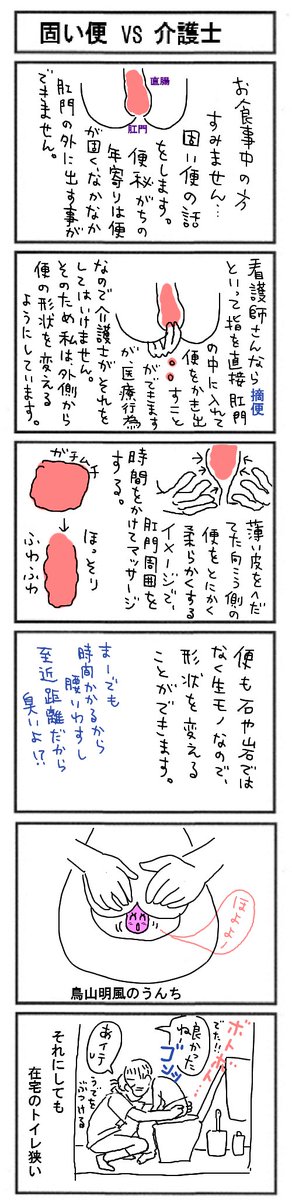 固い便 VS 介護士
お食事中の方
すみません…
固い便の話
をします。
便秘がちの
年寄りは便
が固くなかなか
肛門の外に出す事が
できません。
直腸
肛門
看護師さんなら摘便
といって指を直接肛門
の中に入れて
便をかき出
すこと
ができます
が、医療行為
なので介護士がそれを
してはいけません。
そのため私は外側から
便の形状を変える
ようにしています。
薄い皮をへだ
てた向こう側の
便をとにかく
柔らかくする
イメージで、
肛門周囲を
時間をかけてマッサージ
する。
ガチムチ
ほっそり
ふわふわ
便も石や岩では
なく生モノなので、
形状を変える
ことができます。
まーでも
時間かかるから
腰いわすし
至近距離だから
臭いよ!?
ほよよー
鳥山明風のうんち
ボトボト…
でた!!
良かった
ねー
ゴンッ
あイテ
うでを
ぶつける
それにしても
在宅のトイレ狭い